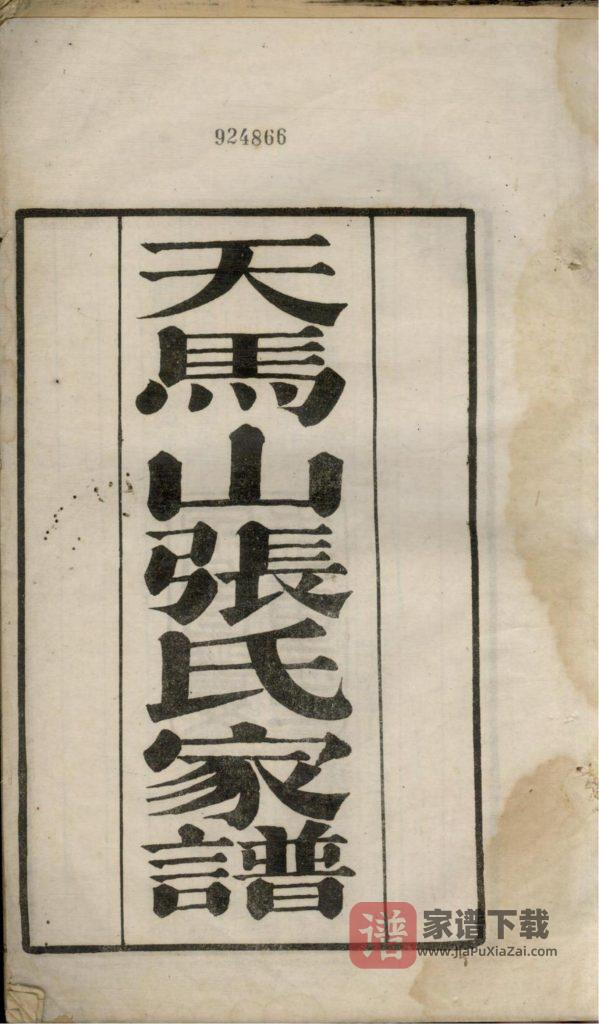 924866
天馬山張氏家譜
谱 家谱下载
www.JiaPuXiaZai.com